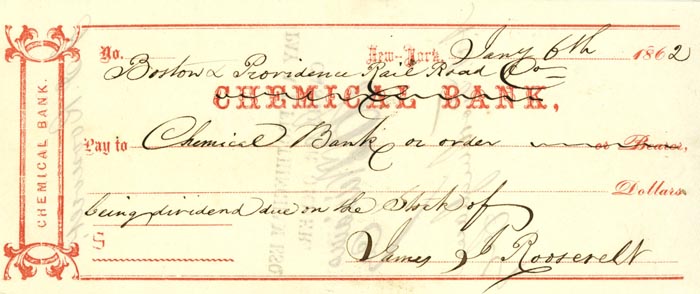 CHEMICAL BANK.
No. New-York, Jany 6th 1862
Boston & Providence Rail Road Co
CHEMICAL BANK,
Pay to Chemical Bank or order or Bearer,
Dollars
being dividend due on the Stock of
£ James J Roosevelt